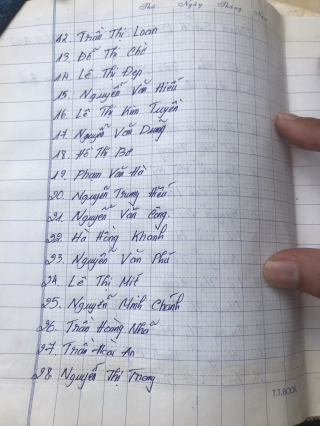 Thứ Ngày Tháng Năm
12. Trần Thị Loan
13. Đỗ Thị Chở
14. Lê Thị Đẹp
15. Nguyễn Văn Hiếu
16. Lê Thị Kim Tuyền
17. Nguyễn Văn Dũng
18. Hồ Thị Bơ
19. Phạm Văn Hà
20. Nguyễn Trung Hiếu
21. Nguyễn Văn Công.
22. Hà Hồng Khanh
23. Nguyễn Văn Phú
24. Lê Thị Mít
25. Nguyễn Minh Chánh
26. Trần Hoàng Nhã
27. Trần Hoài An
28. Nguyễn Thị Trong
T.T.BOOK